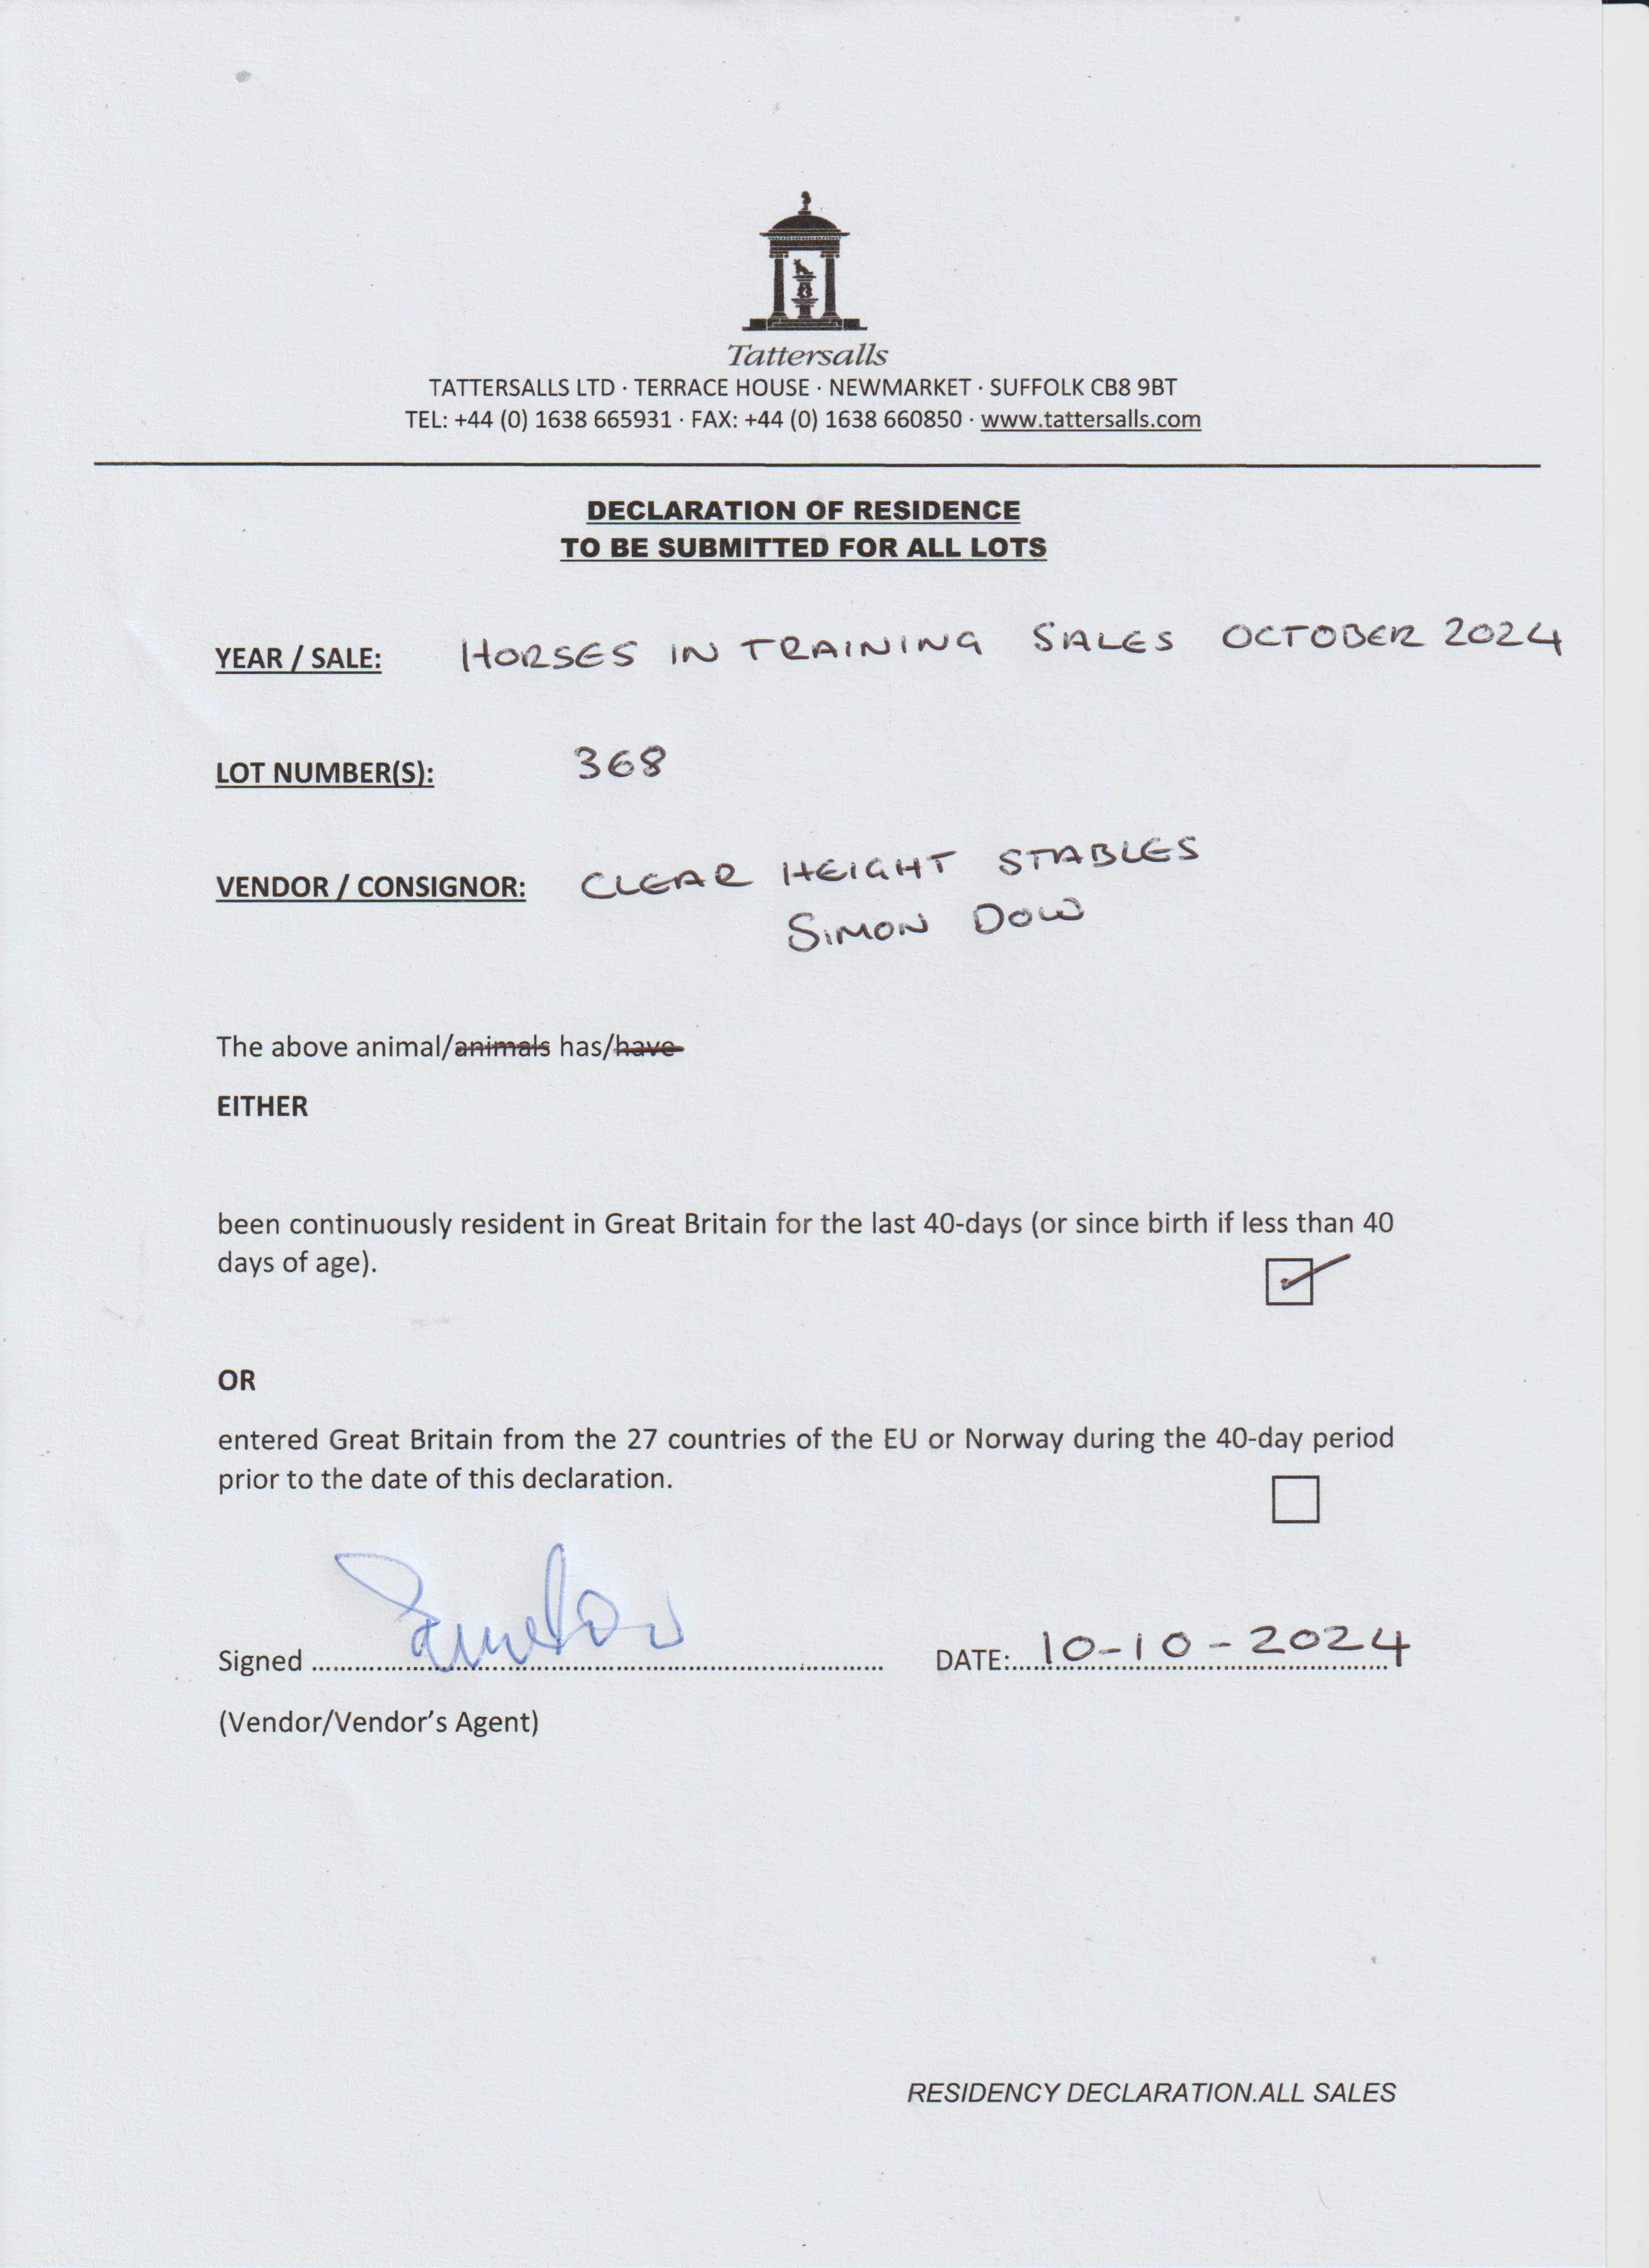 Tattersalls
TATTERSALLS LTD · TERRACE HOUSE · NEWMARKET · SUFFOLK CB8 9BT
TEL: +44 (0) 1638 665931 · FAX: +44 (0) 1638 660850 · www.tattersalls.com
DECLARATION OF RESIDENCE
TO BE SUBMITTED FOR ALL LOTS
YEAR / SALE: HORSES IN TRAINING SALES OCTOBER 2024
LOT NUMBER(S): 368
VENDOR / CONSIGNOR: CLEAR HEIGHT STABLES
SIMON DOW
The above animal/animals has/have
EITHER
been continuously resident in Great Britain for the last 40-days (or since birth if less than 40
days of age).
OR
entered Great Britain from the 27 countries of the EU or Norway during the 40-day period
prior to the date of this declaration.
Signed ........ DATE: 10-10-2024
(Vendor/Vendor's Agent)
RESIDENCY DECLARATION.ALL SALES